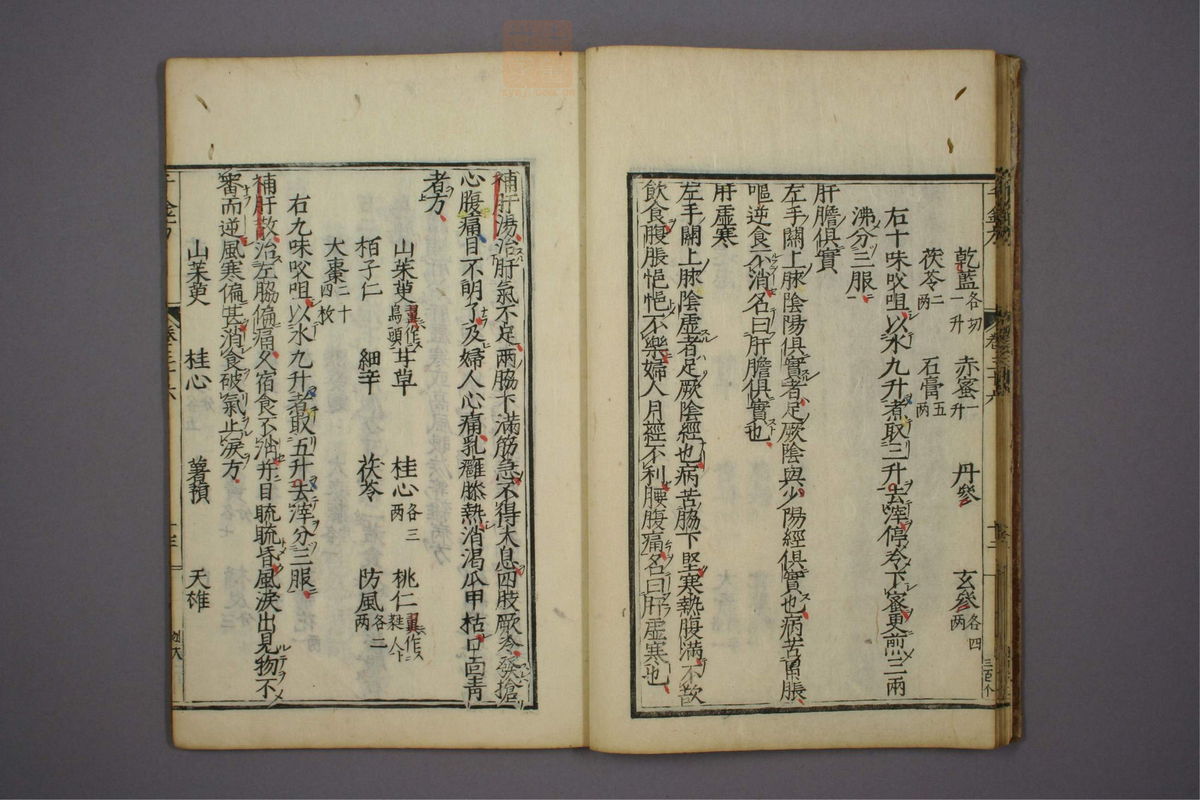 乾藍各切一升　赤蜜一升　丹參　玄參各四两
茯苓二两　石膏五两
右十味㕮咀以水九升煮取三升去滓停冷下蜜更煎三兩
沸分三服
肝膽俱實
左手關上脉陰陽俱實者足厥陰與少陽經俱實也病苦胃脹
嘔逆食不消名曰肝膽俱實也
肝虚寒
左手關上脉陰虚者足厥陰經也病苦脇下堅寒熱腹滿不欲
飲食腹脹悒悒不樂婦人月經不利腰腹痛名曰肝虚寒也
補肝湯治肝氣不足兩脇下滿筋急不得太息四肢厥冷發搶
心腹痛目不明了及婦人心痛乳癰膝熱消渴爪甲枯口面青
者方
山茱萸翼作烏頭　甘草　桂心各三两　桃仁
栢子仁　細辛　茯苓　防風各二两
大棗二十四枚
右九味㕮咀以水九升煮取五升去滓分三服
補肝散治左脇偏痛久宿食不消并目䀮䀮昏風淚出見物不
審而逆風寒偏甚消食破氣止淚方
山茱萸　桂心　薯蕷　天雄